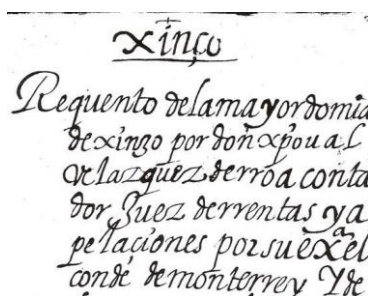 xinço
Requento delamayordomia
dexinzo por don xpoual
Velazquez derroa conta
dor Juez derrentas ya
pelaciones por suexªel
conde demonterrey Yde